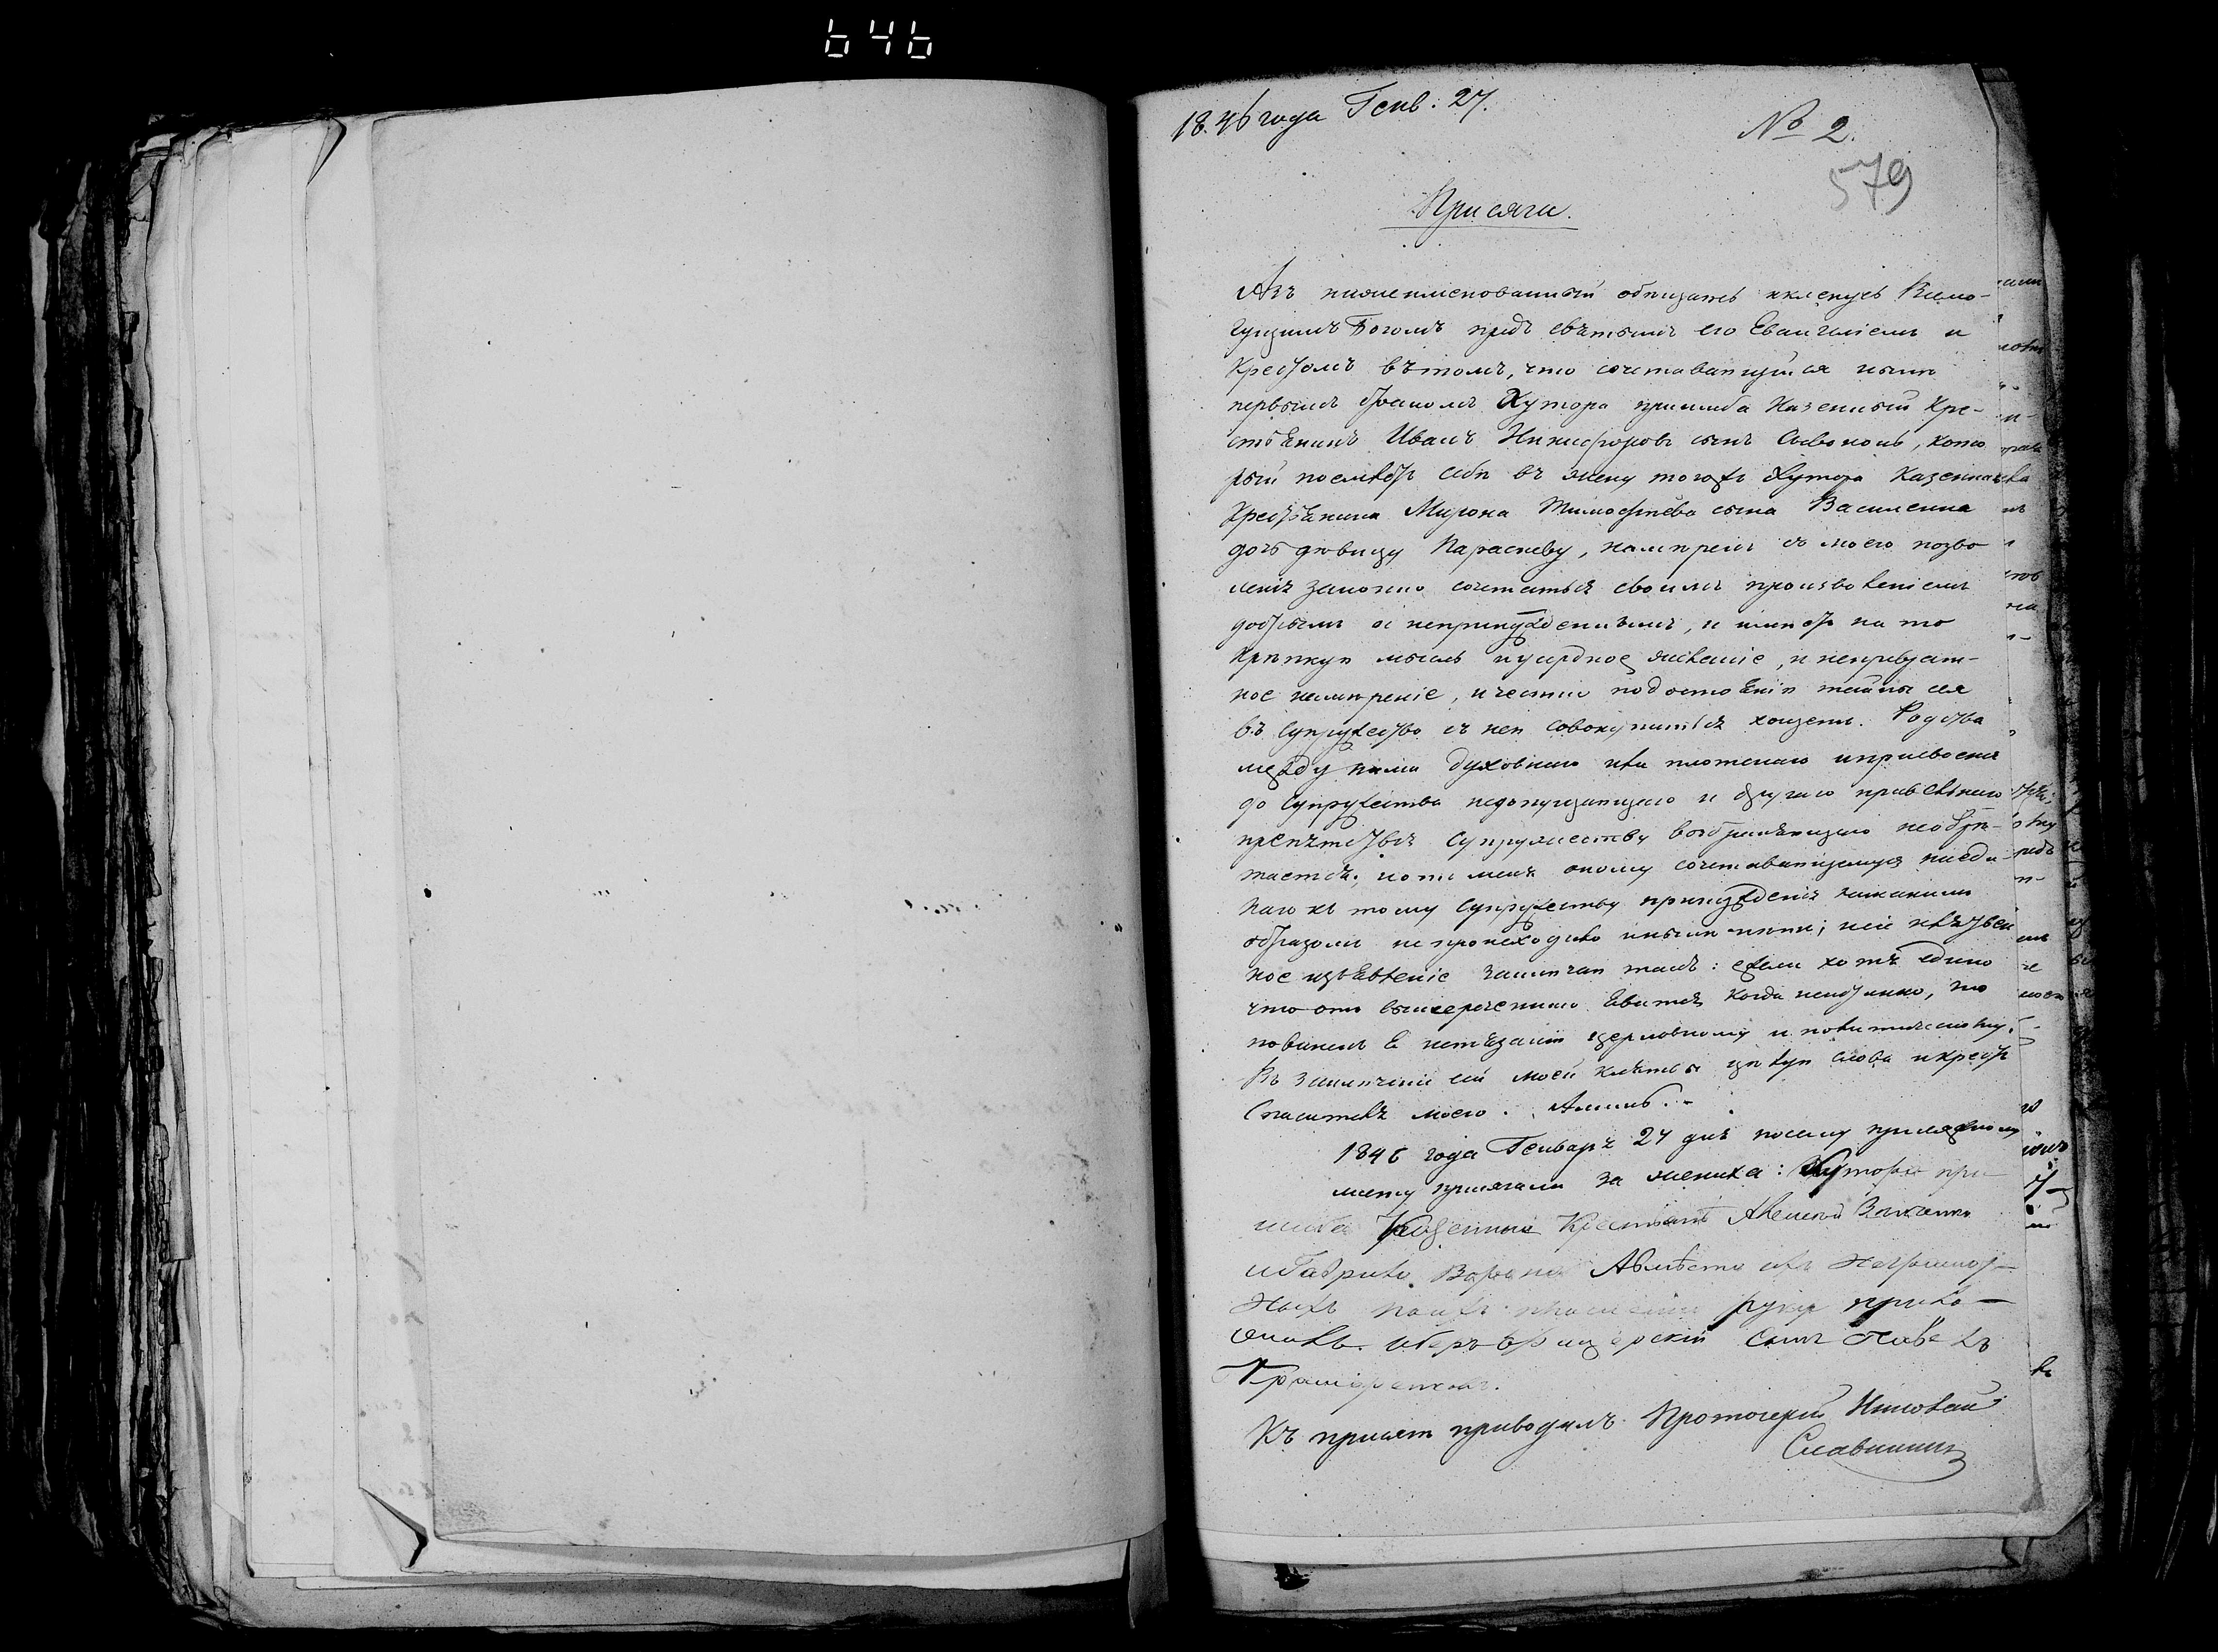 646
1846 года Генв: 27.
№ 2.
579
Присяга.
Азъ нижеименованный обѣщаюсь и клянусь Всемо-
гущимъ Богомъ предъ святымъ его Евангелiемъ и
Крестомъ въ томъ, что сочетавающiйся нынѣ
первымъ бракомъ Хутора Казенный Кре-
стьянинъ Иванъ Никифоровъ сынъ кото
рый поемлетъ себѣ въ жену тогожъ Хутора Казеннаго
Крестьянина Мирона Тимофѣева сына Василенка
дочь дѣвицу Параскеву, намѣренъ съ моего позво
ленiя законно сочетаться своимъ произволенiемъ
добрымъ и непринужденнымъ, и имѣетъ на то
крѣпкую мысль и усердное желанiе, и непревратт-
ное намѣренiе, и честно подостоянiю тайны сея
въ супружество съ нею совокупиться хощетъ. Родства
между ними духовнаго или плотскаго и присвоенiя
до супружества недопущающаго и другаго правильнаго
препятствiя супружеству возбраняющаго необрѣ-
тается; и оти меня оному сочетавающемуся
наго къ тому супружеству принужденiя никакимъ
образомъ непроисходило и нынѣ нѣтъ; и сiе клятвен
ное изъявленiе заключаю такъ: ежели хотя едино
что отъ вышереченнаго явится когда неистинно, то
повиненъ я истязанiю церковному и политическому.
Въ заключенiи сей моей клятвы цѣлую слова и крестъ
Спасителя моего. Аминь.
1846 года Генваря 27 дня посему присяжному
листу присягали за жениха: Хутора
Казенные Крестьяне Алексей
и Гаврило А вмѣсто ихъ неграмот-
ныхъ поихъ прошенiю руку прило-
жилъ оберъ офицерскiй сынъ Павелъ
Къ присягѣ приводилъ Протоiерей Николай